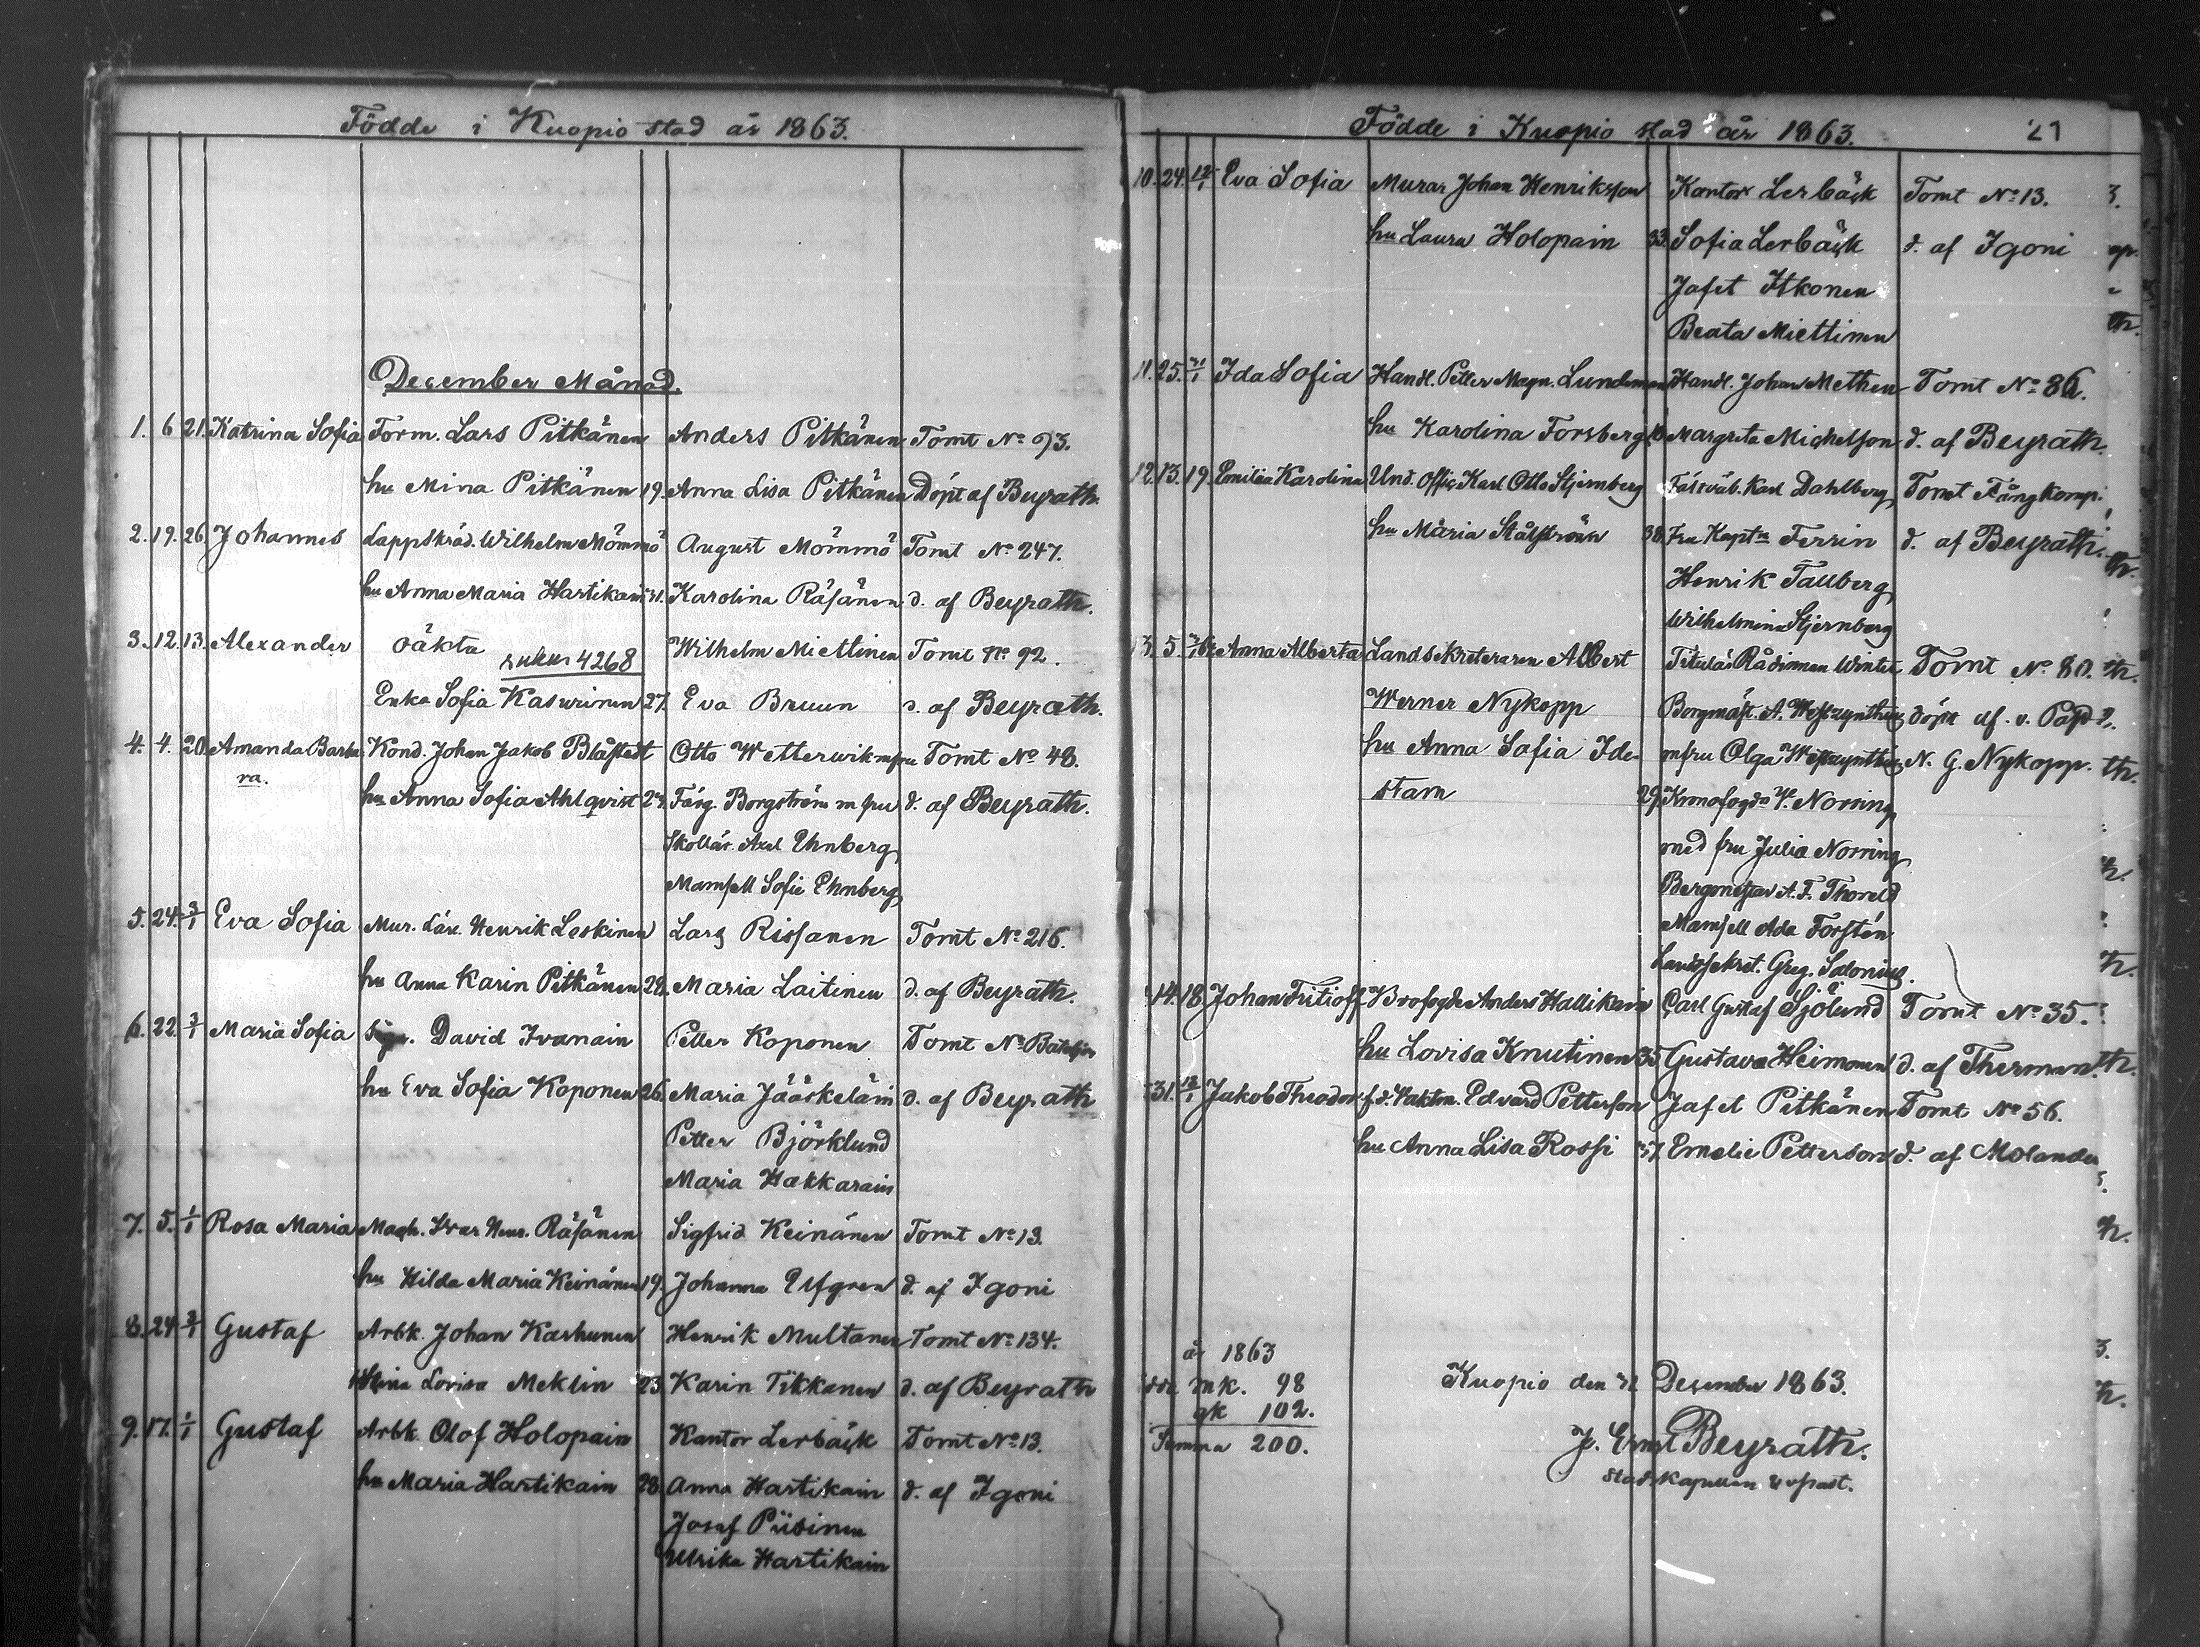 Födde i Kuopio stad år 1863.
December Månad.
1. 6 21. Katrina Sofia Form. Lars Pitkänen Anders Pitkänen Tomt No 93.
hu Mina Pitkänen 19. Anna Lisa Pitkänen Döpt af Beyrath.
2. 19. 26. Johannes Lappskräd. Wilhelm Mömmö August Mömmö Tomt No 247.
hu Anna Maria Hartikain 31. Karolina Räsänen d. af Beyrath.
3. 12. 13. Alexander oäkta Wilhelm Miettinen Tomt No 92.
4268
Enka Sofia Kasurinen 27. Eva Bruun d. af Beyrath.
4. 4. 20. Amanda Barba Kond. Johan Jakob Blåfield Otto Wetterwik mfru Tomt No 48.
ra.
hu Anna Sofia Ahlqvist 29. Färg. Borgström m fru d. af Beyrath.
Skollär. Axel Ehnberg
Mamsell Sofie Ehnberg
5. 24. 3/1 Eva Sofia Mur. Lärl. Henrik Leskinen Lars Rissanen Tomt No 216.
hu Anna Karin Pitkänen 22. Maria Laitinen d. af Beyrath.
6. 22. 3/1 Maria Sofia David Ivanain Petter Koponen Tomt No
hu Eva Sofia Koponen 26. Maria Jääskeläin d. af Beyrath
Petter Björklund
Maria Hakkarain
7. 5. 1/1 Rosa Maria Magh. Ivar Henr. Räsänen Sigfrid Keinänen Tomt No 13.
hu Hilda Maria Keinänen 19. Johanna Elfgren d. af Igoni
8. 24 3/1 Gustaf Arbk. Johan Karhunen Henrik Multanen Tomt No 134.
Lovisa Meklin 23 Karin Tikkanen d. af Beyrath
9. 17. 1/1 Gustaf Arbk. Olof Holopain Kantor Lerbäck Tomt No 13.
hu Maria Hartikain 28. Anna Hartikain d. af Igoni
Josef Piisinen
Ulrika Hartikain
Födde i Kuopio stad år 1863. 29
10. 24. 12/1 Eva Sofia Murar Johan Henriksson Kantor Lerbäck Tomt No 13.
hu Laura Holopain 33. Sofia Lerbäck d. af Igoni
Jafet Itkonen
Beata Miettinen
11. 25. Ida Sofia Handl. Petter Magn. Lundeman Handl. Johan Methen Tomt No 86.
hu Karolina Forsberg Margreta Michelson d. af Beyrath.
12. 13. 19. Emilia Karolina Und. Offic. Karl Otto Stjernberg Karl Dahlberg Tomt Fångkomp.
hu Maria Stålström 38. Fru Kapt. Ferrin d. af Beyrath.
Henrik Tallberg
Wilhelmina Stjernberg
3. 5. Anna Alberta Landssekreteraren Albert Titulär Rådinnan Winter Tomt No 80.
Werner Nykopp Borgmäst. A. Weszynthius döpt af v. Past
hu Anna Sofia Ide- mfru Olga Weszynthius N. G. Nykopp.
stam 29. Kronofogde V. Norring
med fru Julia Norring
A. F. Thoreld
Mamsell Ada Forstén
Landssekret. Greg. Salonius.
14. 18. Johan Fritioff Brofogde Anders Hallikain Carl Gustaf Sjölund Tomt No 35.
hu Lovisa Knutinen 35. Gustava Heimonen d. af Therman.
31. 12/1 Jakob Theodor f.d. Vaktm. Edvard Petterson Jafet Pitkänen Tomt No 56.
hu Anna Lisa Rossi 37. Emelie Petterson d. af Molander
år 1863
mk. 98
qk 102.
Summa 200.
Kuopio den 31 December 1863.
J. Ernst Beyrath.